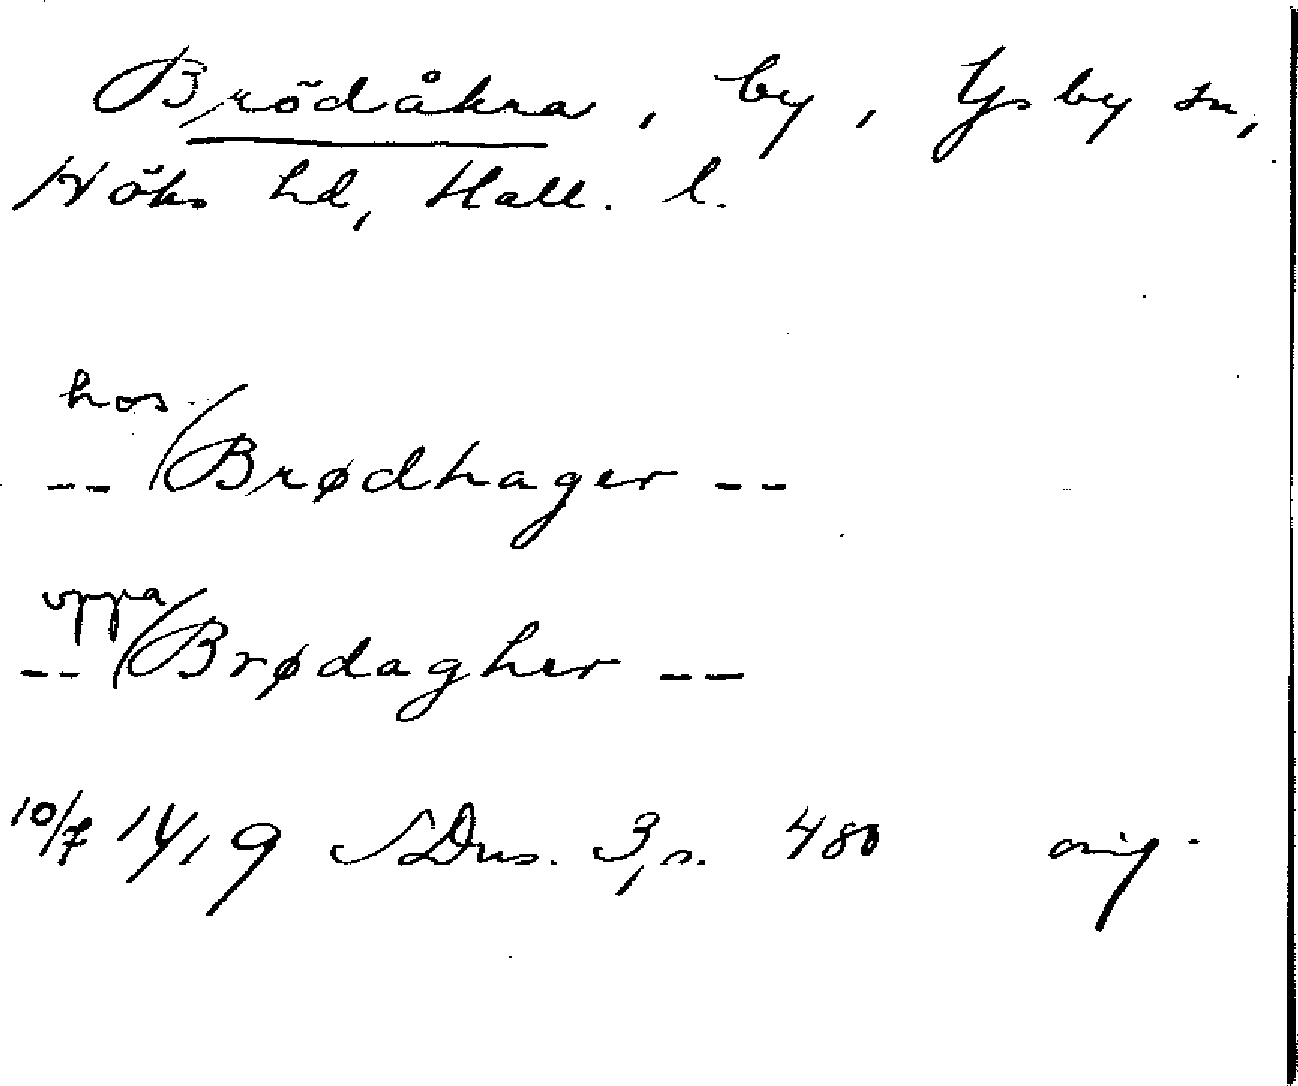 Brödåkra, by, Ysby sn,
Höks hd, Hall. l.
hos
-- Brødhager --
uppa
-- Brødagher --
10/7 1419 SDns. 3, s. 480 orig.